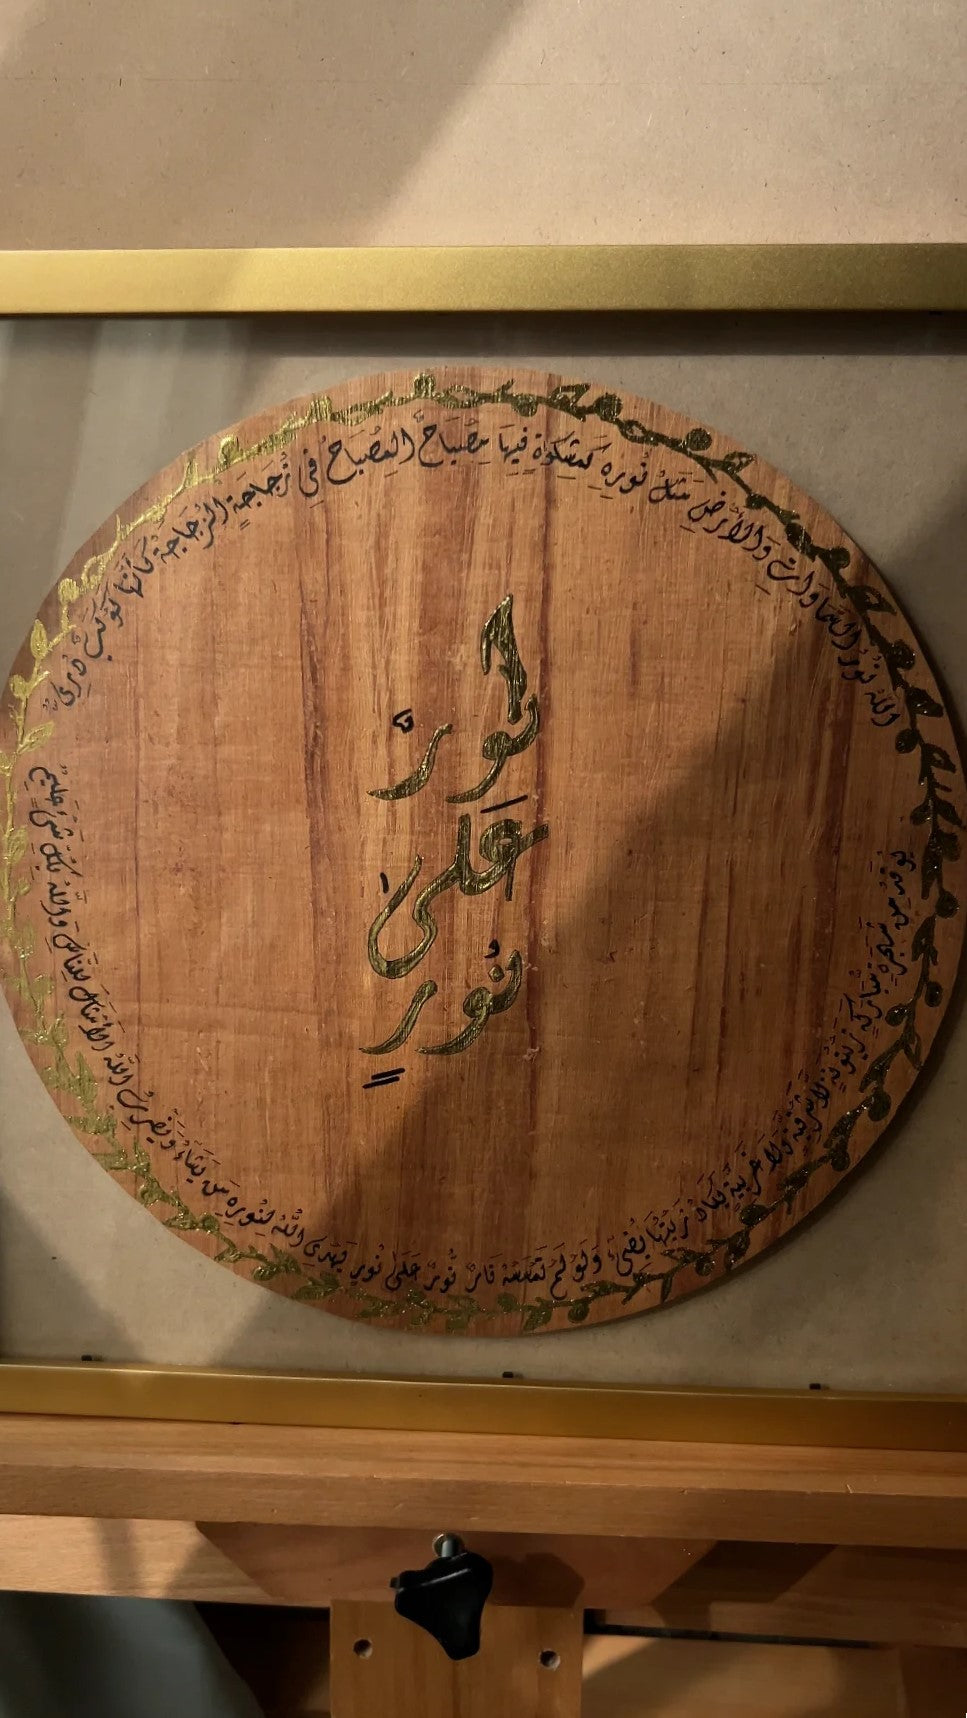 اللهُ نُورُ السَّمَاوَاتِ وَالْأَرْضِ مَثَلُ نُورِهِ كَمِشْكَوٰةٍ فِيهَا مِصْبَاحٌ الْمِصْبَاحُ فِي زُجَاجَةٍ الزُّجَاجَةُ كَأَنَّهَا كَوْكَبٌ دُرِّيٌّ
يُوقَدُ مِن شَجَرَةٍ مُّبَارَكَةٍ زَيْتُونَةٍ لَا شَرْقِيَّةٍ وَلَا غَرْبِيَّةٍ يَكَادُ زَيْتُهَا يُضِيءُ وَلَوْ لَمْ تَمْسَسْهُ نَارٌ نُّورٌ عَلَىٰ نُورٍ يَهْدِي اللَّهُ لِنُورِهِ مَن يَشَاءُ وَيَضْرِبُ اللَّهُ الْأَمْثَالَ لِلنَّاسِ وَاللَّهُ بِكُلِّ شَيْءٍ عَلِيمٌ
نُورٌ
عَلَىٰ
نُورٍ